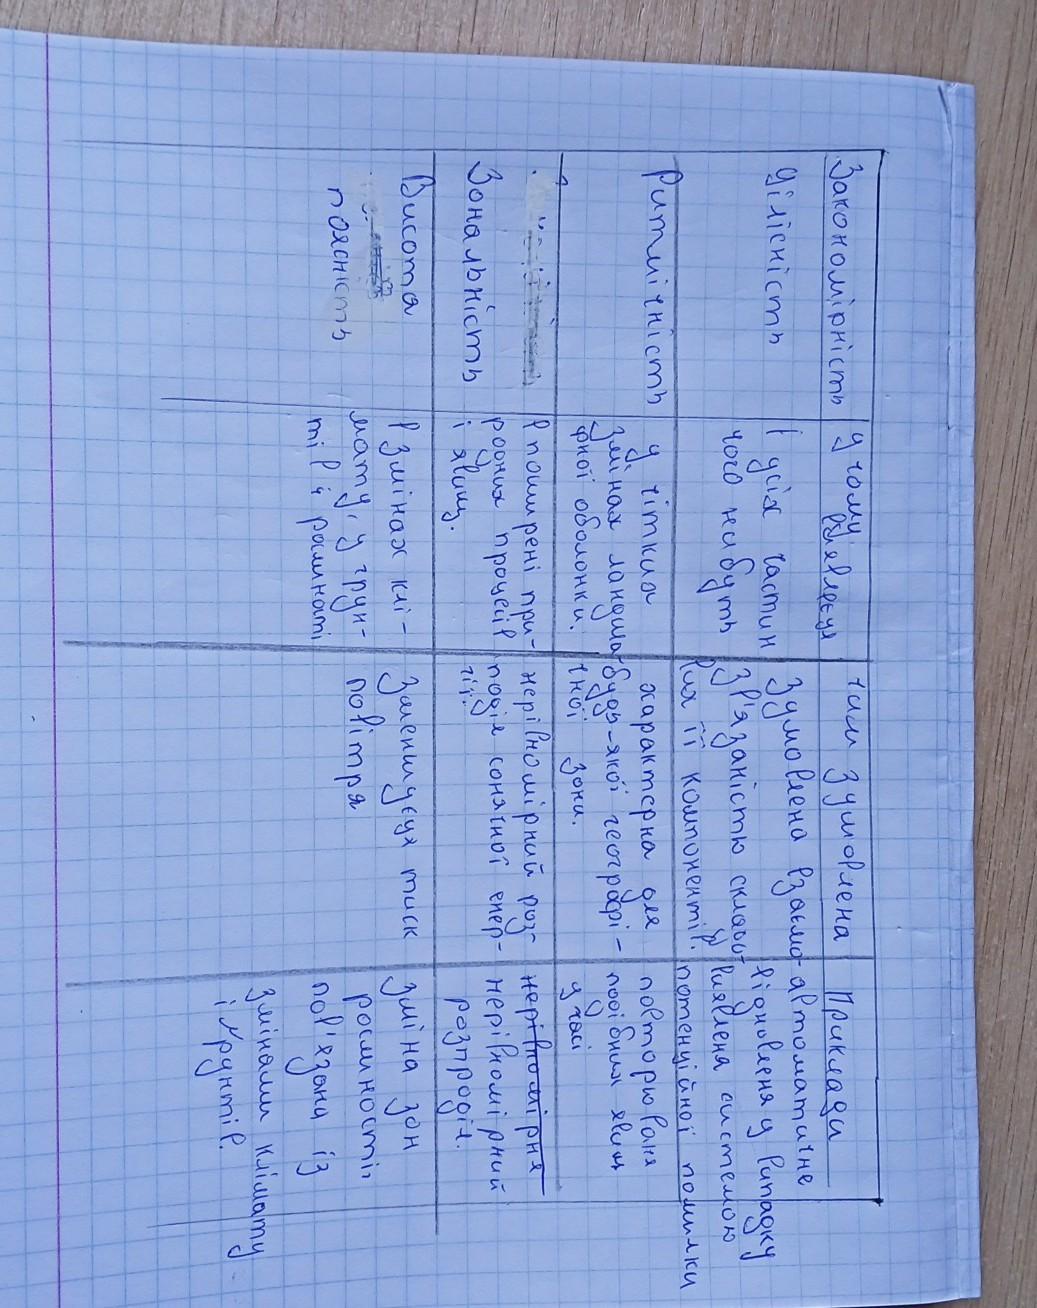 Закономірність
у чому виявляєця
чим зумовлена
Приклади
Цілісність
в усіх частин
чого небудь
Зумовлена взаємо-
зв'язаністю складо-
вих її компонентів.
автоматичне
відновленя у випадку
виявлена системою
потенційної помилки
Ритмічність
у чітких
змінах ландша-
фної оболонки.
характерна для
будь-якої географі-
чної зони.
повторюваня
подібних явищ
у часі
Зональність
в поширені при-
родних процесів
і явищ.
нерівномірний роз-
поділ сонячної енер-
гії.
нерівномірня
нерівномірний
розподіл.
Висота
поясність
в змінах клі-
мату, у грун-
тів й рослинності
Зменшуєця тиск
повітря
зміна зон
рослинності
пов'язана із
змінами клімату
і грунтів.